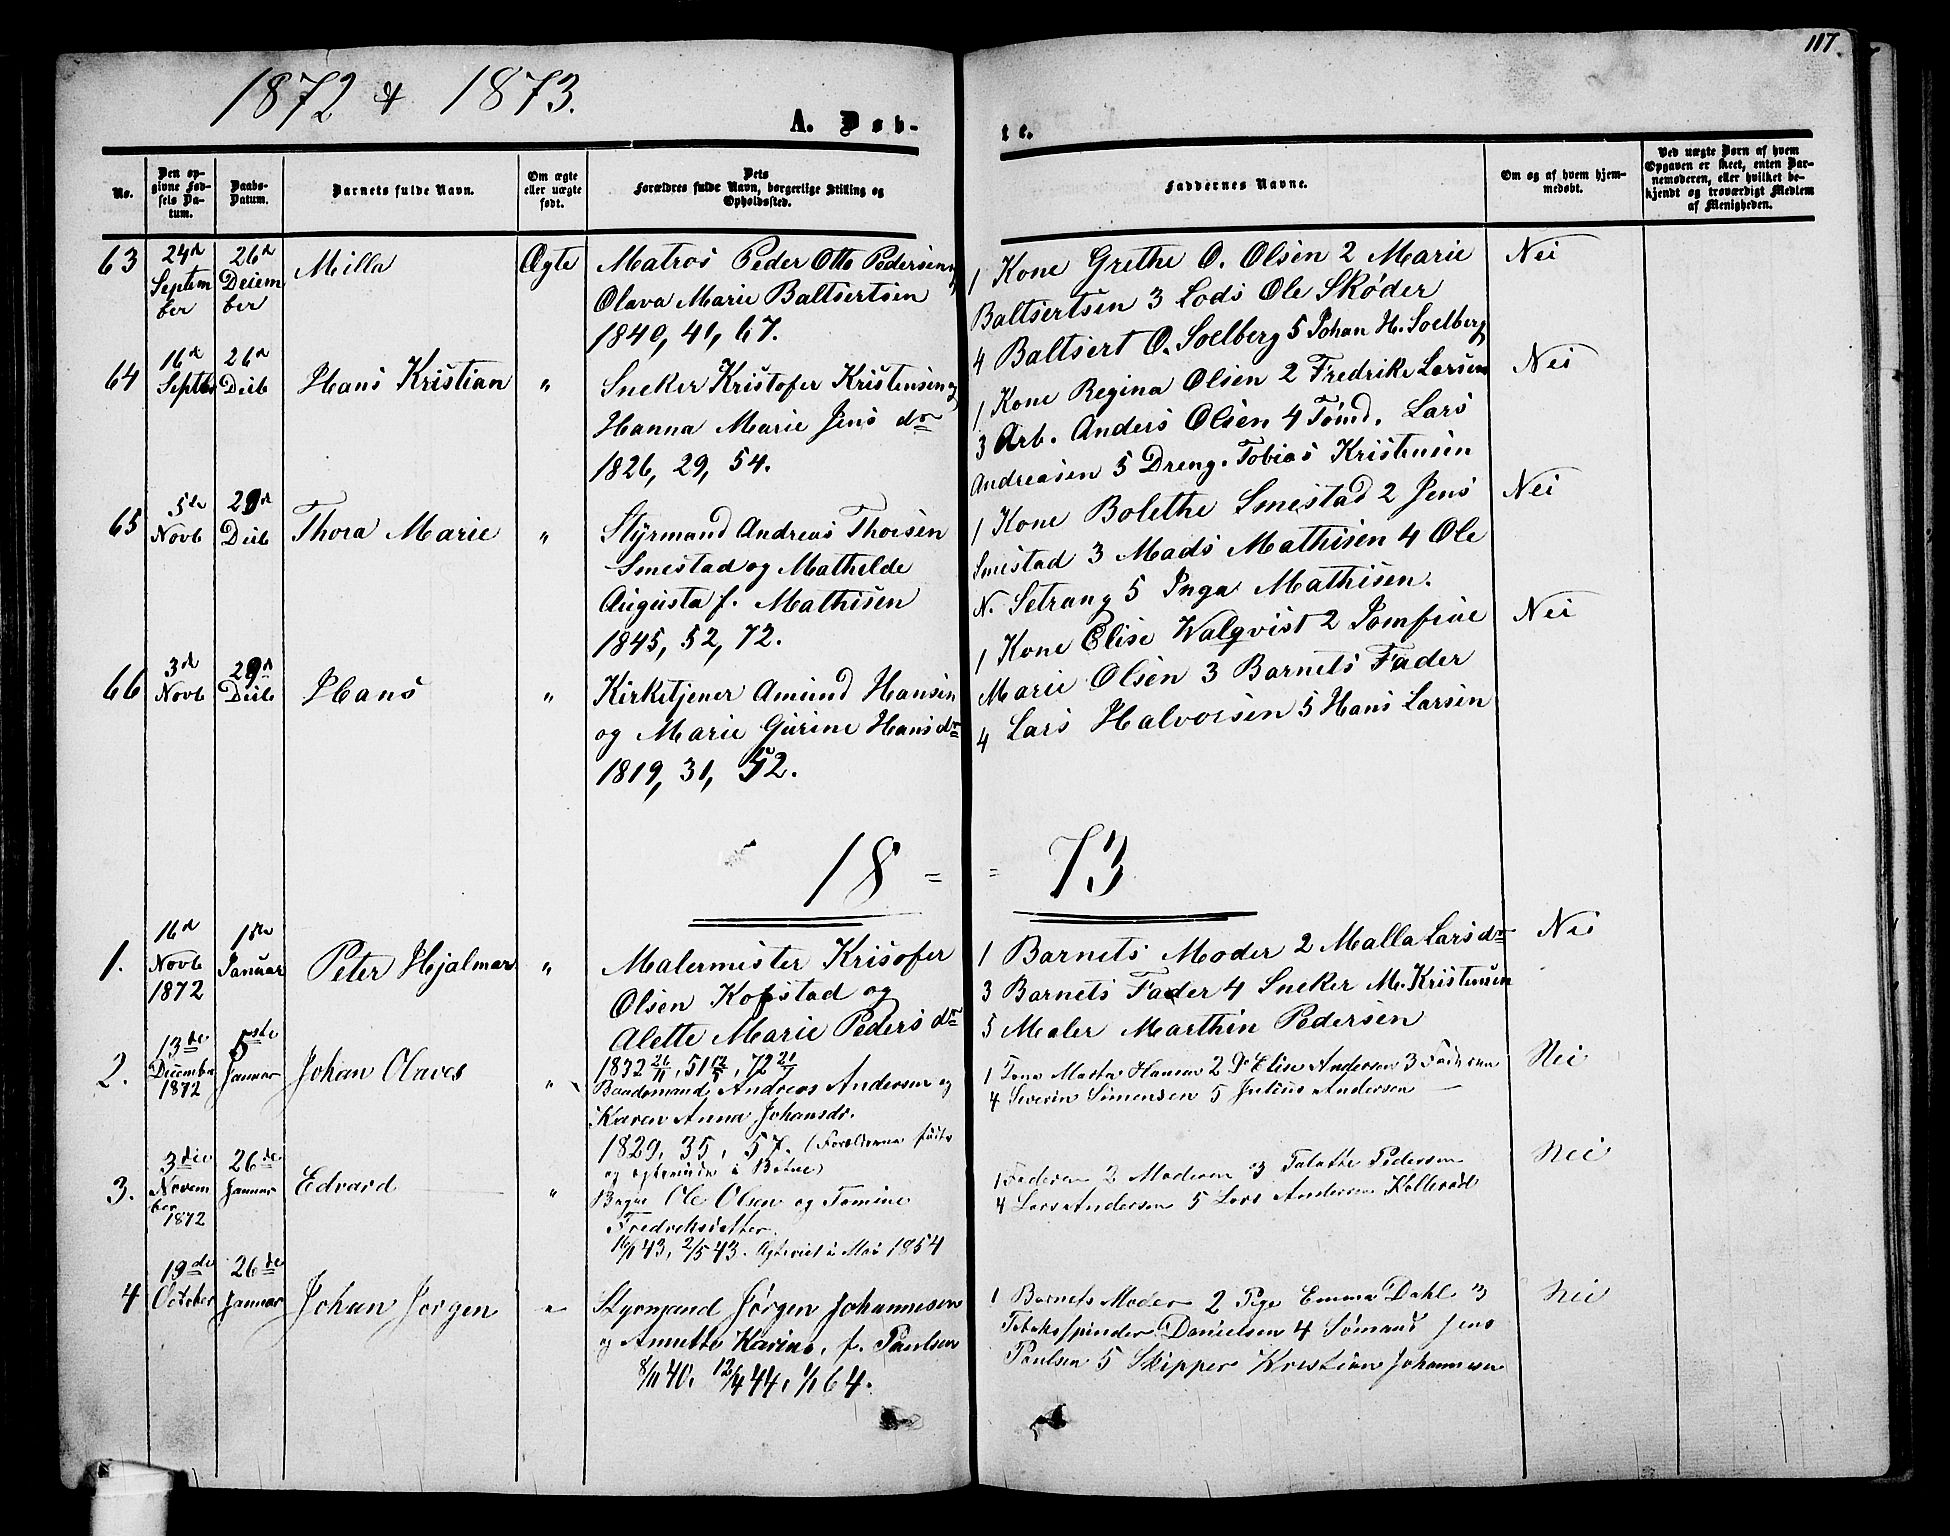 1872 & 1873.
117.
A. Døb-
te.
No.
Den op-
givne Fød-
sels Da-
tum.
Daabs-
Datum.
Barnets fulde Navn.
Om ægte
eller uægte
født.
Dets
Forældres fulde Navn, borgerlige Stilling og
Opholdssted.
Faddernes Navne.
Om og af hvem hjem-
medøbt.
Ved uægte Børn af hvem
Opgaven er skeet, enten Bar-
nemoderen, eller hvilket be-
kjendt og troværdigt Medlem
af Menigheden.
63
24de
Septem
ber
26de
Deiem
ber
Milla
Ægte
Matros Peder Otto Pedersen og
Olava Marie Baltsertsen
1840, 41, 67.
1 Kone Grethe O. Olsen 2 Marie
Baltsertsen 3 Lods Ole Skøder
4 Baltsert O. Soelberg 5 Johan H. Soelberg
Nei
64
16de
Septbr
26de
Deib
Hans Kristian
"
Sneker Kristofer Kristensen og
Hanna Marie Jens dr
1826, 29, 54.
1 Kone Regina Olsen 2 Fredrike Larsen
3 Arb. Anders Olsen 4 Tømd. Lars
Andreasen 5 Dreng. Tobias Kristensen
Nei
65
5te
Novb
29de
Deib
Thora Marie
"
Styrmand Andreas Thorsen
Smestad og Mathilde
Augusta f. Mathisen
1845, 52, 72.
1 Kone Bolethe Smestad 2 Jens
Smestad 3 Mads Mathisen 4 Ole
N. Setrang 5 Inga Mathisen.
Nei
66
3de
Novb
29de
Deib
Hans
"
Kirketjener Amund Hansen
og Marie Gurine Hans dr
1819, 31, 52.
1 Kone Elise Walqvist 2 Jomfrue
Marie Olsen 3 Barnets Fader
4 Lars Halvorsen 5 Hans Larsen
Nei
18 = = 73
1.
16de
Novb
1872
1ste
Januar
Peter Hjalmar
"
Malermister Krisofer
Olsen Kopstad og
Alette Marie Peders dr
1832 26/11, 51 12/5, 72 21/7
1 Barnets Moder 2 Malla Lars dr
3 Barnets Fader 4 Sneker M. Kristensen
5 Maler Marthin Pedersen
Nei
2.
13de
December
1872
5te
Januar
Johan Olaves
"
Baadsmand Andreas Andersen og
Karen Anna Johansdr.
1829, 35, 57. (Forældrene fødte
og ægteviede i Botne)
1 Marta Hansen 2 Do Elise Andersen 3 Faderen
4 Severin Simensen 5 Julius Andersen
Nei
3.
3die
Novem
ber
1872
26de
Januar
Edvard
"
Ole Olsen og Tomine
Fredriksdatter
16/1 43, 2/5 43. Ægteviet i Mai 1854
1 Faderen 2 Moderen 3 Talette Pedersen
4 Lars Andersen 5 Lars Andersen Kollerød
Nei
4
19de
October
26de
Januar
Johan Jørgen
"
Styrmand Jørgen Johannesen
og Annette Karine, f. Paulsen
8/11 40, 12/4 44, 1/1 64.
1 Barnets Moder 2 Pige Emma Dahl 3
Tobakspinder Danielsen 4 Sømand Jens
Paulsen 5 Skipper Kristian Johannesen
Nei